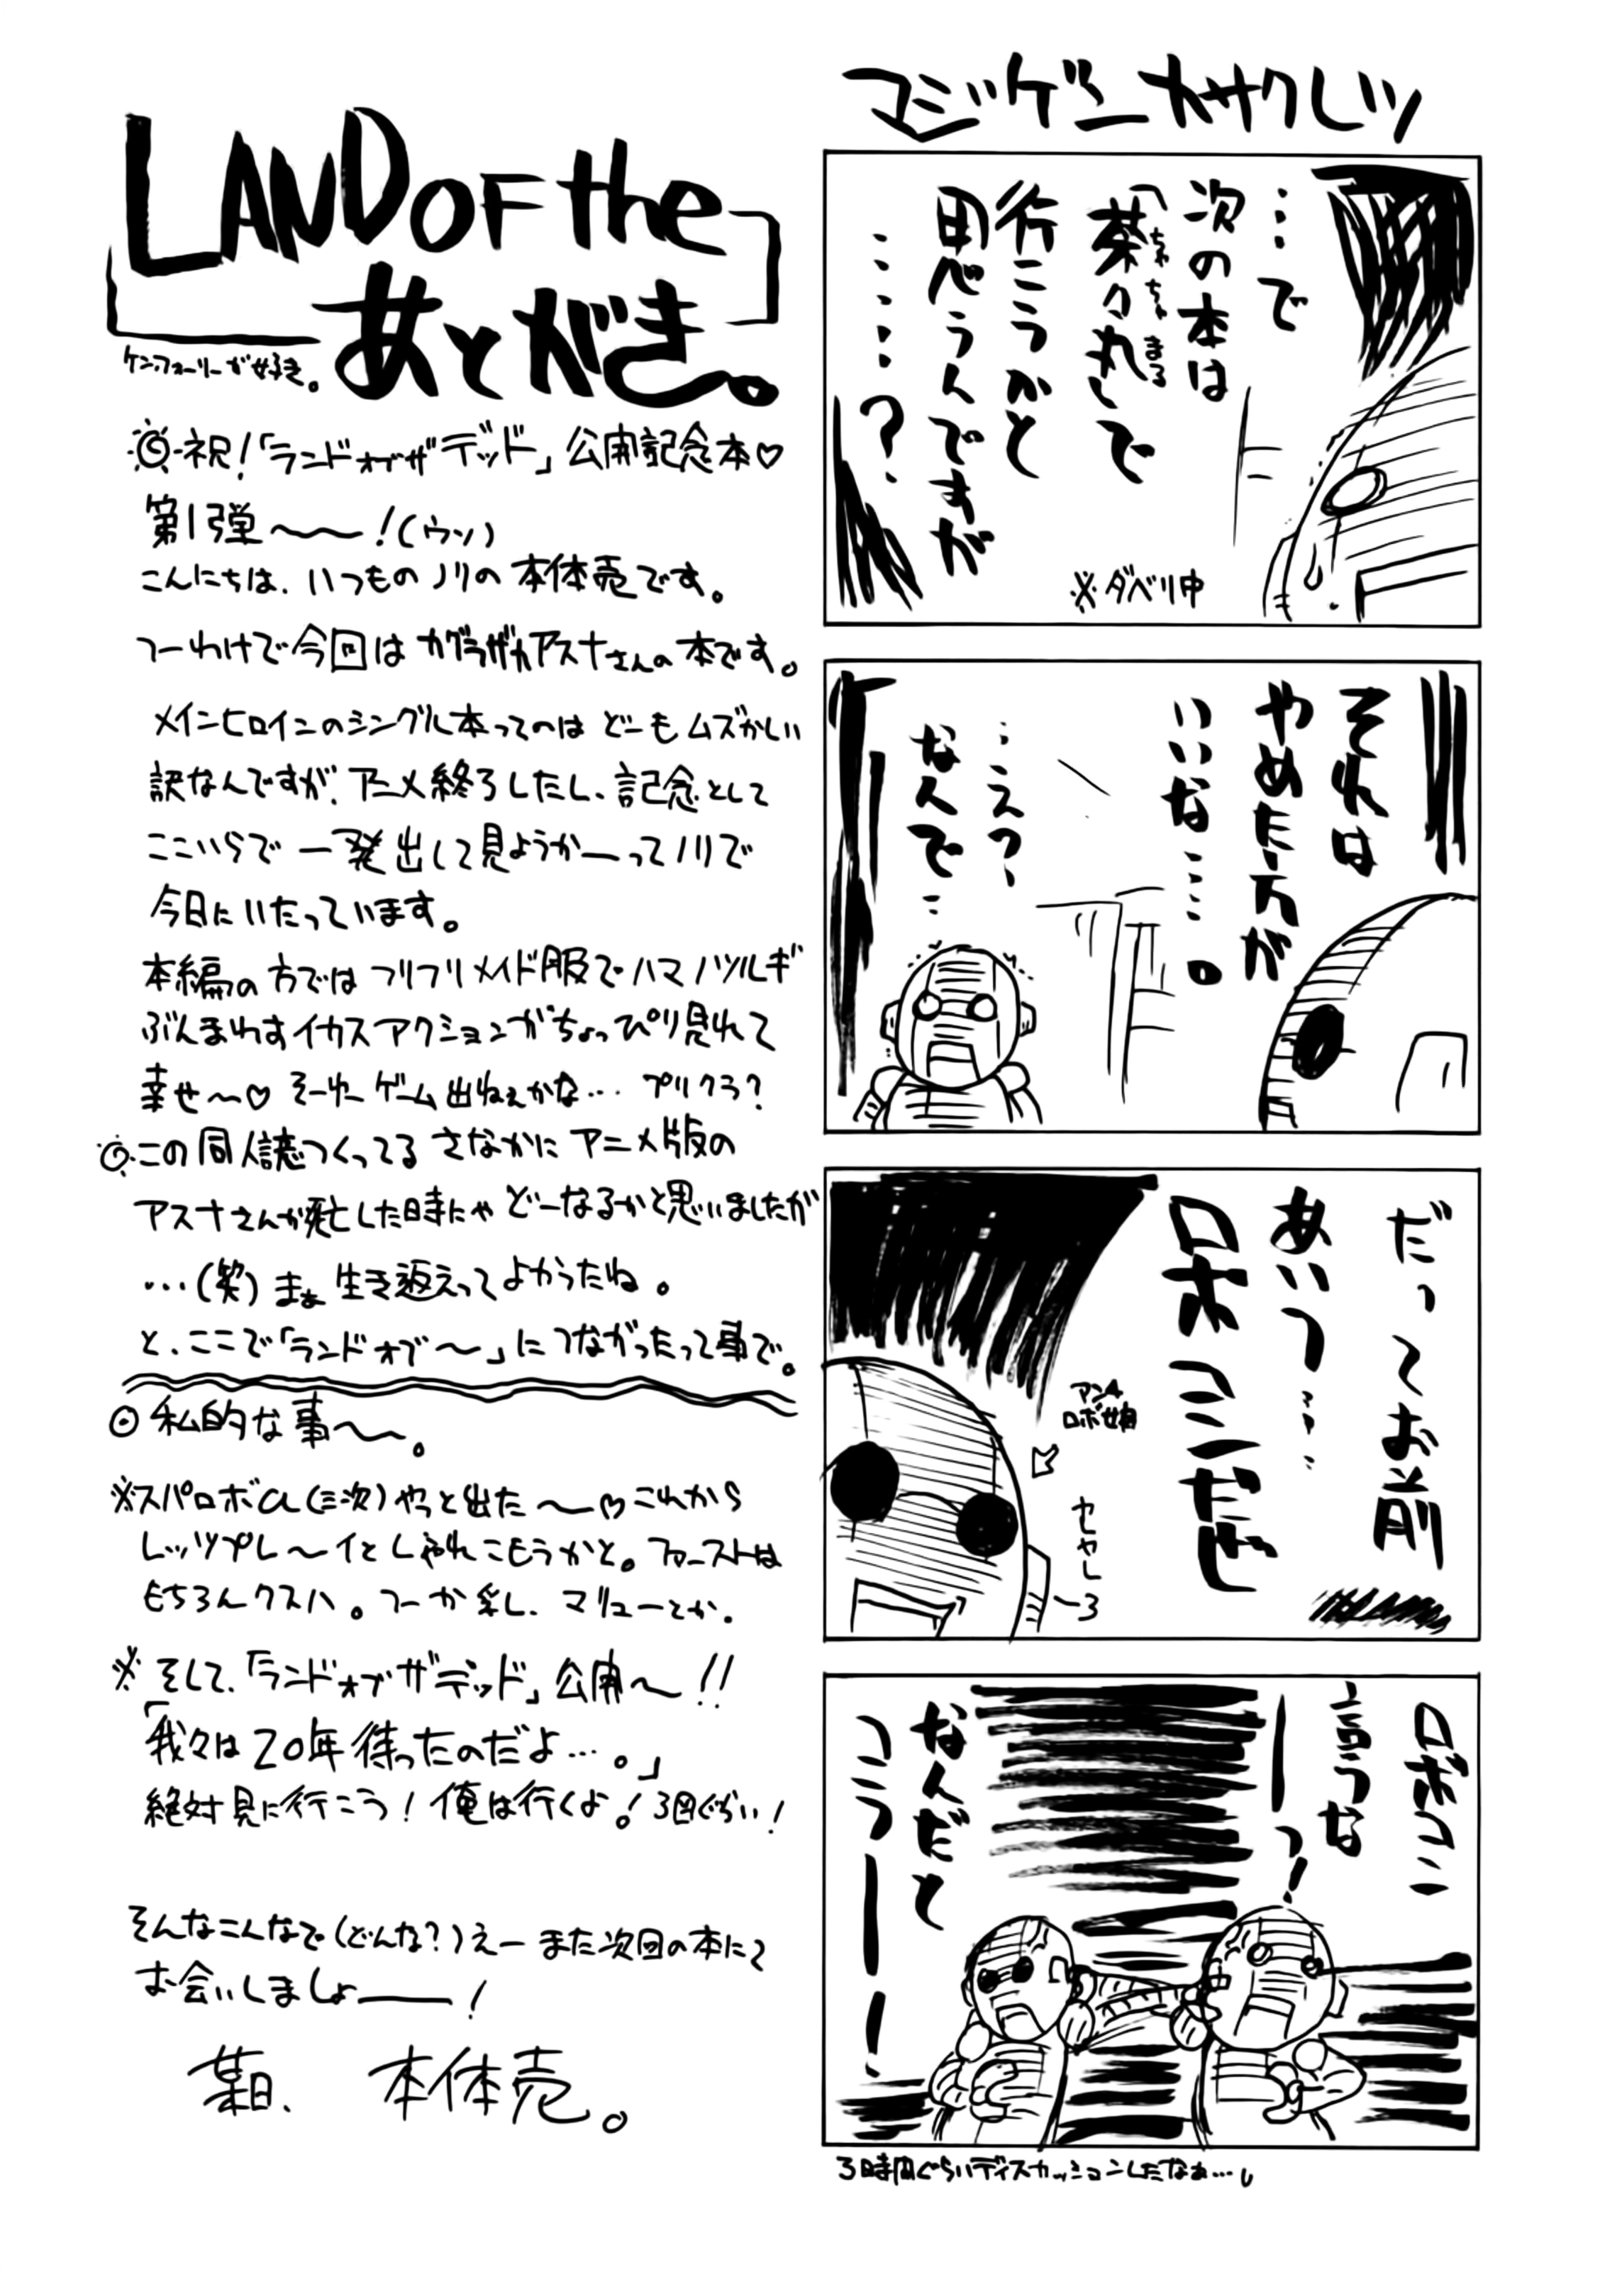 LAND OF the
あとがき。
ケン・フォーリーが好き。
◎祝!「ランドオブザデッド」公開記念本♡
第1弾〜〜!(ウソ)
こんにちは、いつものノリの本体売です。
つーわけで今回はカグラザカアスナさんの本です。
メインヒロインのシングル本ってのはどーもムズかしい
訳なんですが、アニメ終ろしたし、記念として
ここいらで一発出して見ようかーってノリで
今日にいたっています。
本編の方ではフリフリメイド服でハマノツルギ
ぶんまわすイカスアクションがちょっぴり見れて
幸せ〜♡ そーゆーゲーム出ねぇかな… プリクラ?
◎この同人誌つくってるさなかにアニメ版の
アスナさんが死亡した時にゃどーなるかと思いましたが
…(笑)まぁ生き返えってよかったね。
と、ここで「ランドオブ〜」につながったって事で。
◎私的な事〜。
※スパロボα(三次)やっと出た〜♡これから
レッツプレ〜イとしゃれこもうかと。ファーストは
もちろんクスハ。つーか乳し、マリューとか。
※そして、「ランドオブザデッド」公開〜!!
「我々は20年待ったのだよ…。」
絶対見に行こう!俺は行くよ!3回ぐらい!
そんなこんなで(どんな?)えーまた次回の本にて
お会いしましょーー!
某日、 本体売。
マジゲンカサクレツ
…で
次の本は
「茶々丸」で
ちゃちゃまる
行こうかと
思うんですが
……?
※ダベリ中
それは
やめた方が
いいな……。
…えっ、
なんで…
だってお前
あいつ……
ロボコンだぜ
アンチ
ロボ娘
ヤヒャしーろ
ロボコン
言うな
ーーっ!
なんだと
コラーーー!
3時間ぐらいディスカッションしたなぁ…。